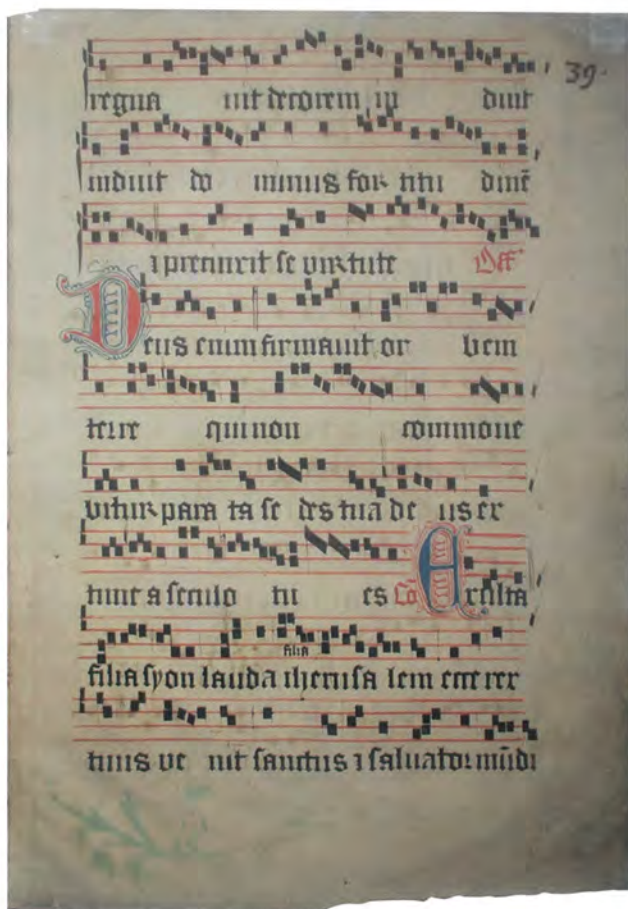 39.
regna uit decorem in duit
induit do minus for titu dinē
i precinxit se virtute Off
Deus enim firmauit or bem
terre qui non commoue
vitur para ta se des tua de us ex
tunc a seculo tu es Cō Exulta
filia
filia syon lauda iherusa lem ecce rex
tuus ve nit sanctus ⁊ saluator mūdi